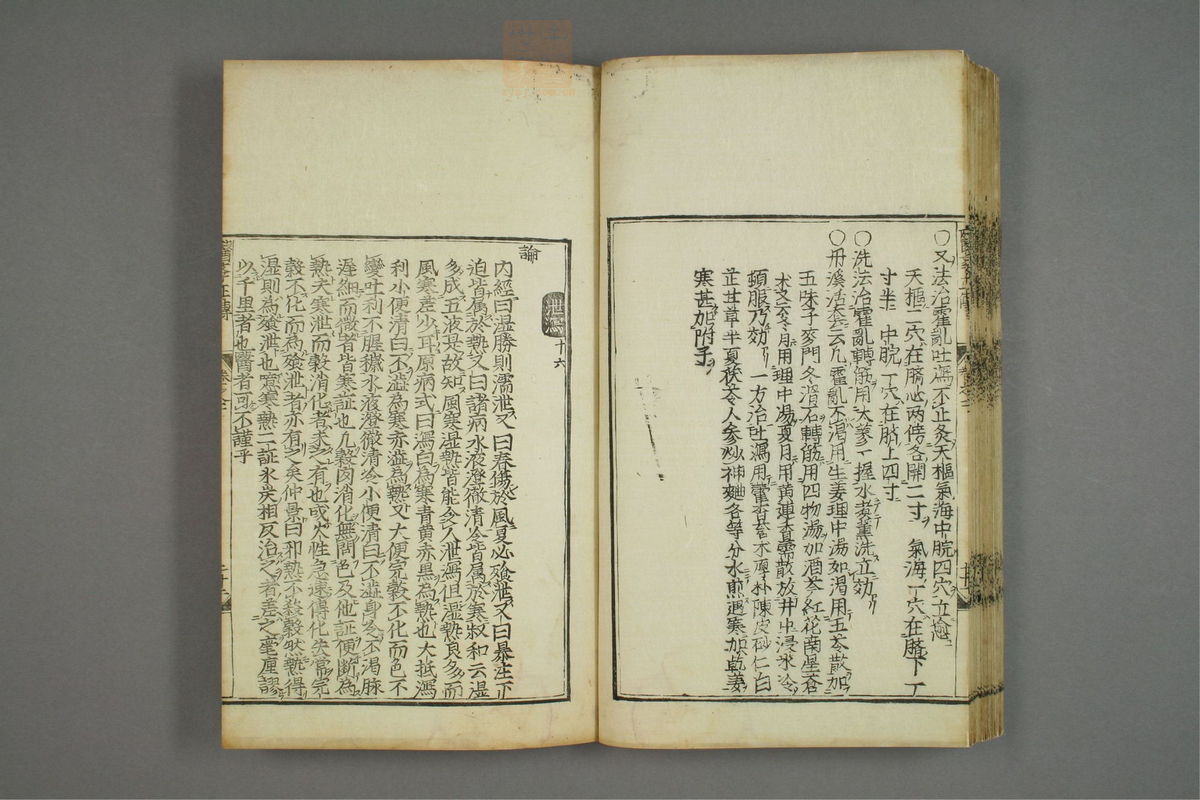 ○又法治霍亂吐瀉不止灸天樞氣海中脘四穴立愈
天樞二穴在臍心兩傍各開二寸 氣海一穴在臍下一
寸半 中脘一穴在臍上四寸
○洗法治霍亂轉筋用大蓼一握水煮薰洗立効
○丹溪活套云凡霍亂不渴用生姜理中湯如渴用五苓散加
五味子麥門冬滑石轉筋用四物湯加酒芩紅花南星蒼
朮又云冬月用理中湯夏月用黄連香薷散放井中浸氷冷
頓服乃効 一方治吐瀉用藿香蒼朮厚朴陳皮砂仁白
芷甘草半夏茯苓人參炒神麯各等分水煎遇寒加乾姜
寒甚加附子
泄瀉 十六
論
內經曰湿勝則濡泄又曰春傷於風夏必飱泄又曰暴注下
迫皆属於熱又曰諸病水液澄徹清冷皆属於寒叔和云湿
多成五液是故知風寒湿熱皆能令人泄瀉但湿熱良多而
風寒差少耳原病式曰瀉白為寒青黄赤黑為熱也大抵瀉
利小便清白不澁為寒赤澁為熱又大便完穀不化而色不
變吐利不腥穢水液澄徹清冷小便清白不澁身冷不渴脉
遲細而微者皆寒証也凡穀肉消化無問色及他証便斷為
熱夫寒泄而穀消化者未之有也或火性急速傳化失常完
穀不化而為飱泄者亦有之矣仲景曰邪熱不殺穀然熱得
湿則為飱泄也寒熱二証氷炭相反治之者差之毫厘謬
以千里者也醫者可不謹乎